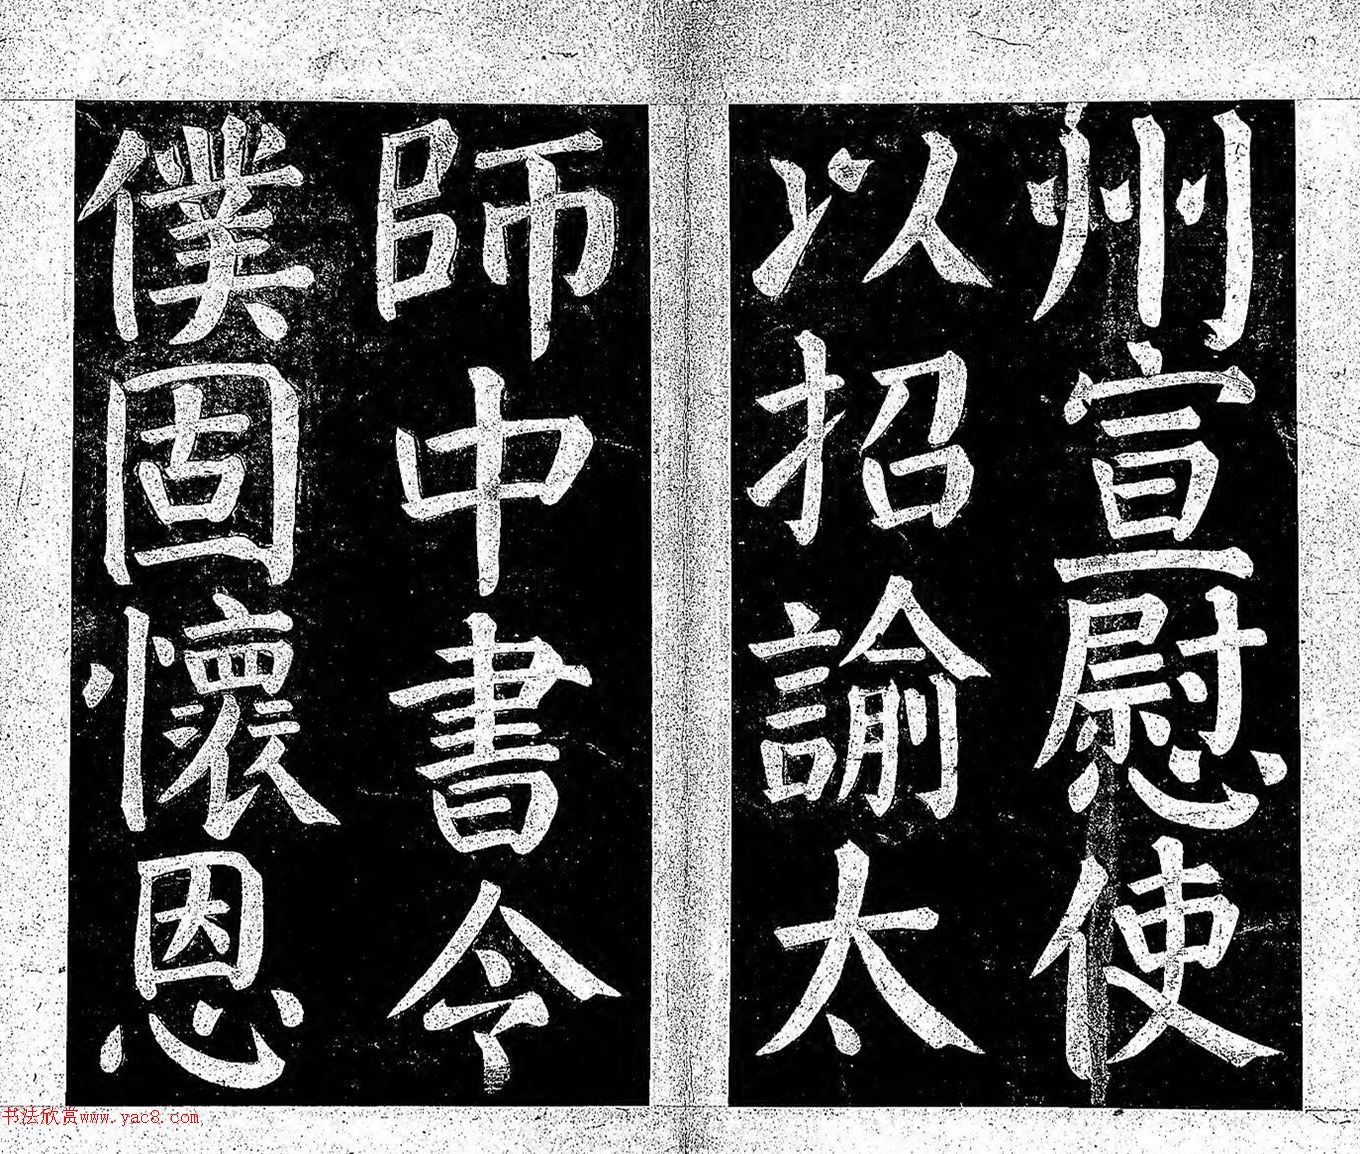 州宣慰使
以招諭太
師中書令
僕固懷恩
书法欣赏www.yac8.com